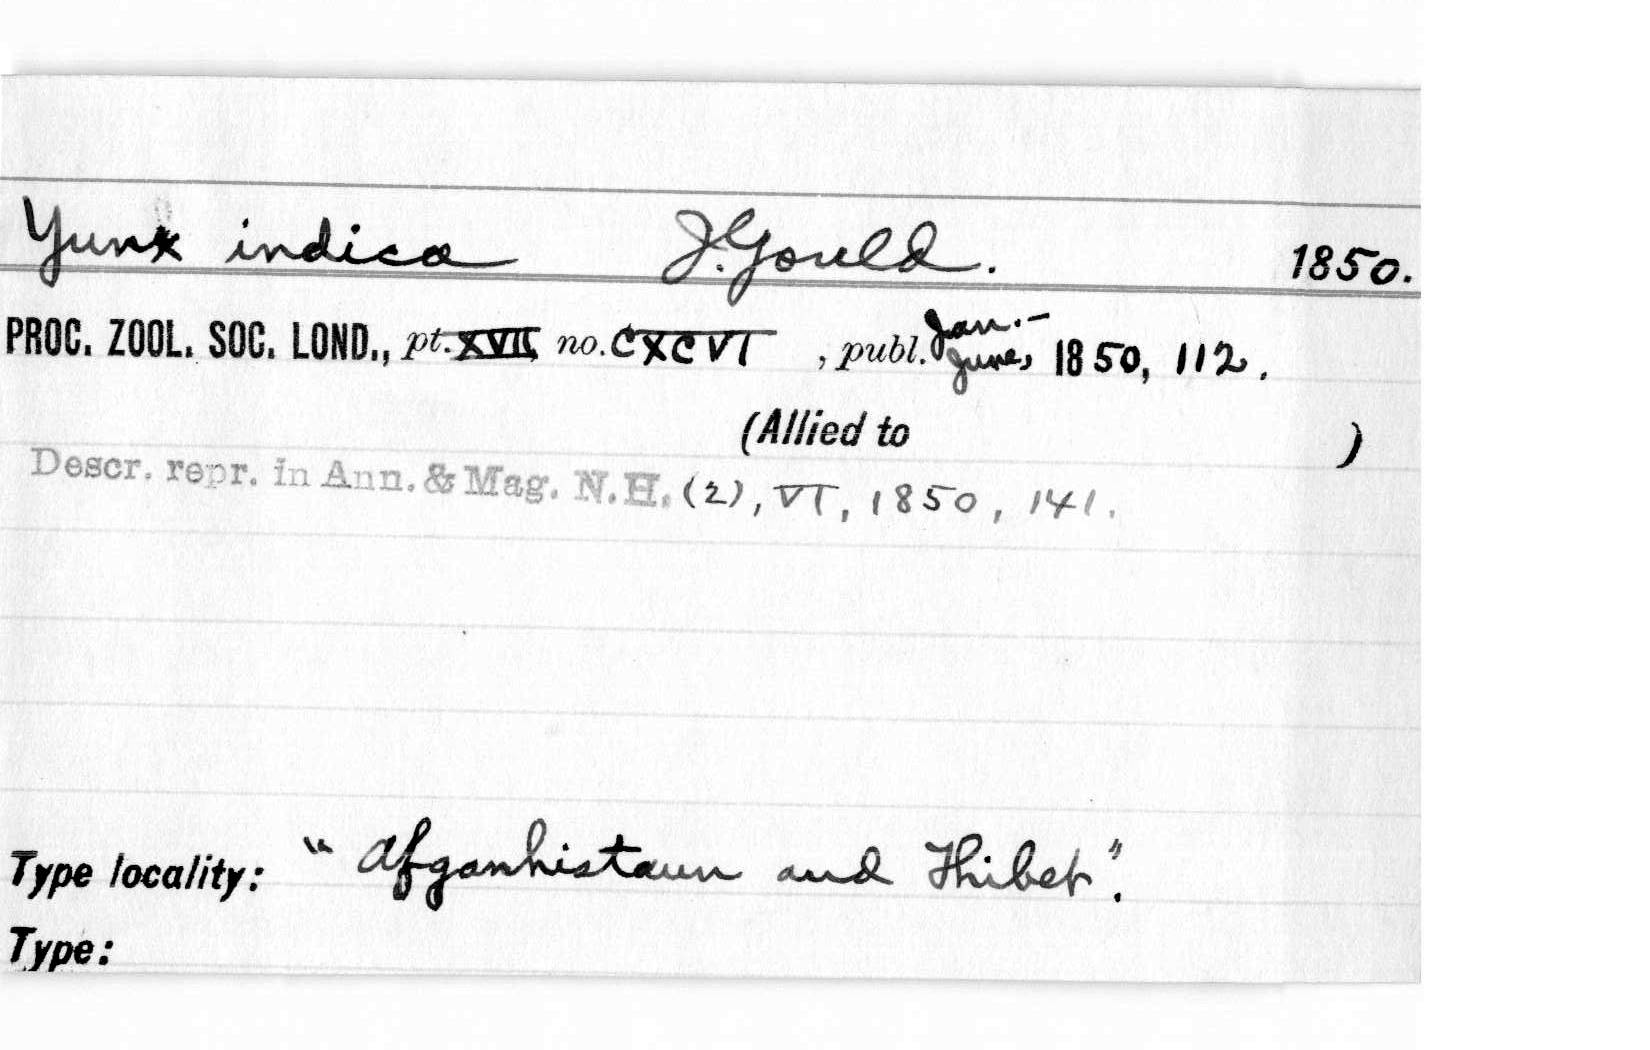 Yunx indica J. Gould. 1850.
PROC. ZOOL. SOC. LOND., pt. XVII, no. CXCVI , publ. Jan. - June, 1850, 112.
(Allied to )
Descr. repr. in Ann. & Mag. N.H. (2), VI, 1850, 141.
Type locality: "Afganhistaun and Thibet".
Type: